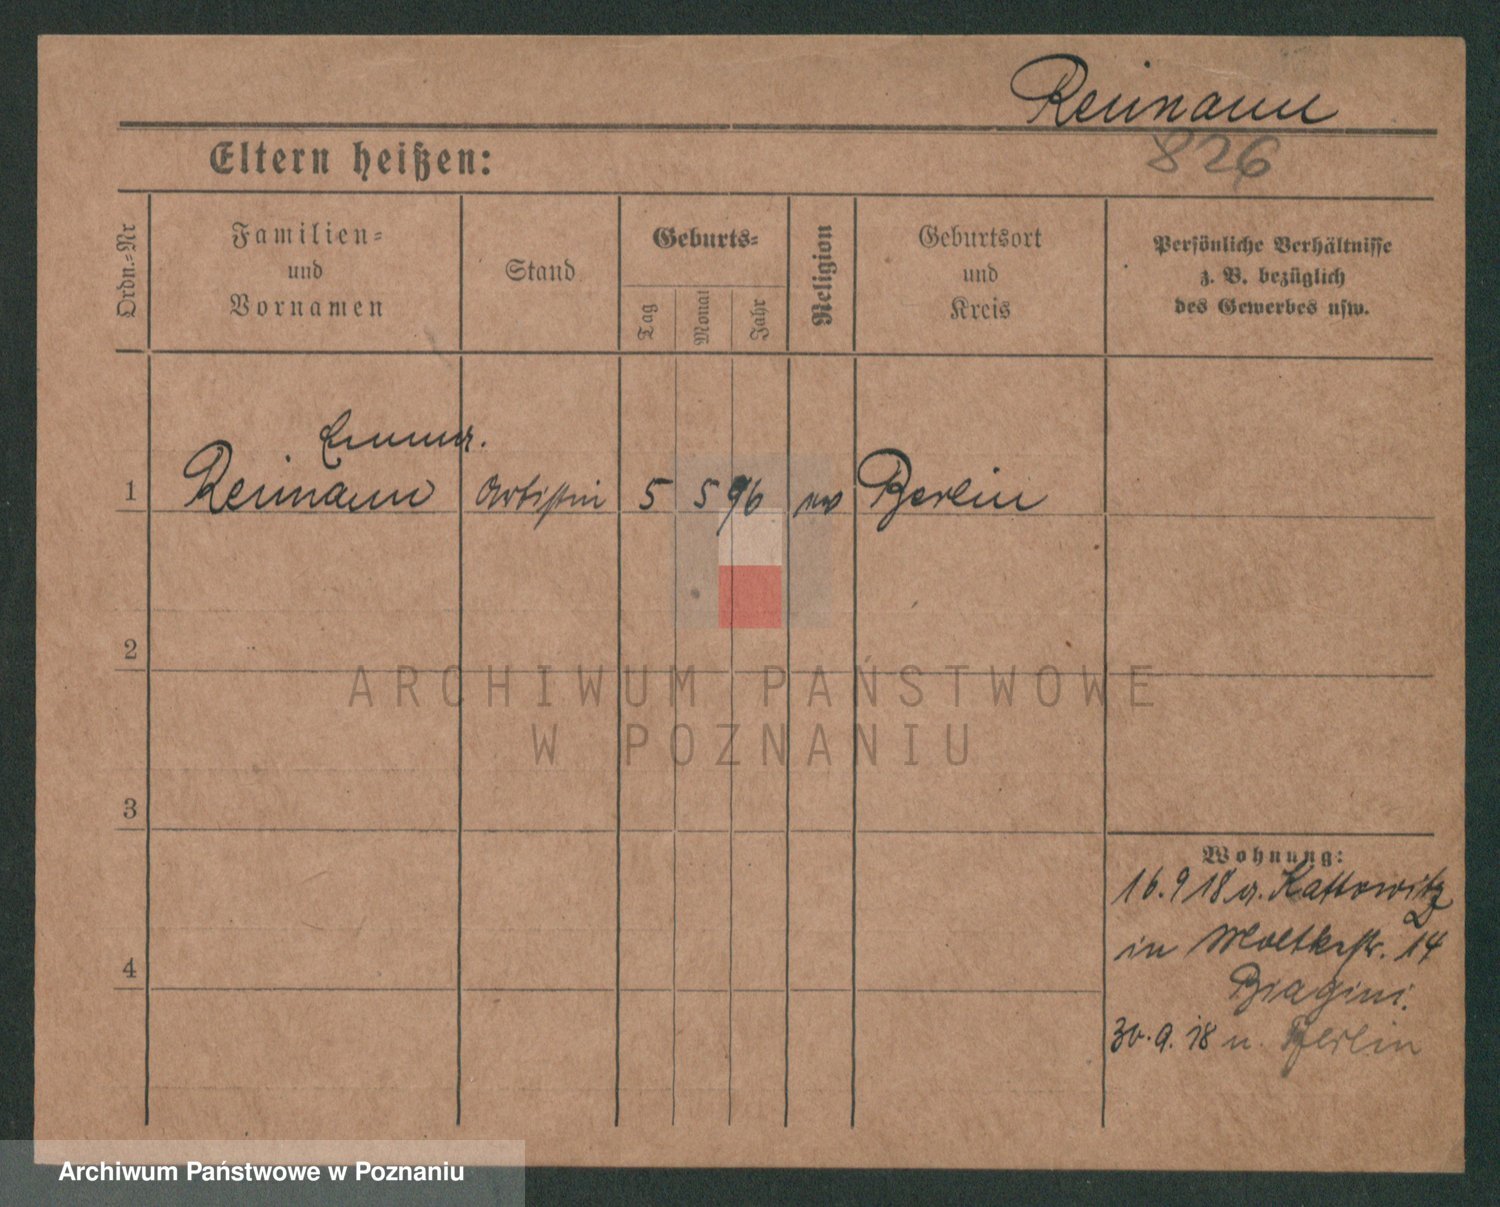 Reimann
826
Eltern heißen:
Ordn.-Nr
Familien-
und
Vornamen
Stand
Geburts-
Tag
Monat
Jahr
Religion
Geburtsort
und
Kreis
Persönliche Verhältnisse
z. B. bezüglich
des Gewerbes usw.
Emma.
1 Reimann Artistin 5 5 96 ev Berlin
2
3
4
Wohnung:
16.9 18 a. Kattowitz
in Moltkestr. 14
Biagini.
30.9.18 n. Berlin
ARCHIWUM PAŃSTWOWE
W POZNANIU
Archiwum Państwowe w Poznaniu